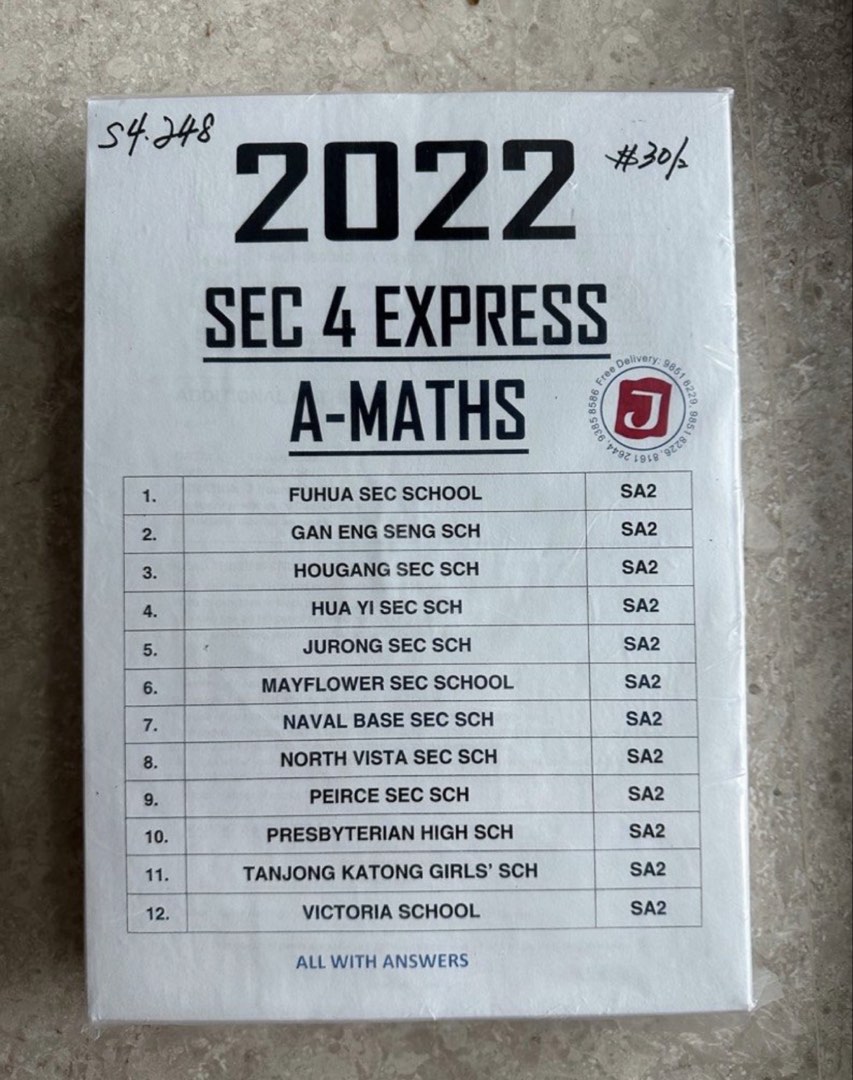 S4.248
2022
#30/2
SEC 4 EXPRESS
A-MATHS
Free Delivery: 9851 8229, 9851 8226, 8161 2644, 9385 8586
J
1. FUHUA SEC SCHOOL SA2
2. GAN ENG SENG SCH SA2
3. HOUGANG SEC SCH SA2
4. HUA YI SEC SCH SA2
5. JURONG SEC SCH SA2
6. MAYFLOWER SEC SCHOOL SA2
7. NAVAL BASE SEC SCH SA2
8. NORTH VISTA SEC SCH SA2
9. PEIRCE SEC SCH SA2
10. PRESBYTERIAN HIGH SCH SA2
11. TANJONG KATONG GIRLS' SCH SA2
12. VICTORIA SCHOOL SA2
ALL WITH ANSWERS